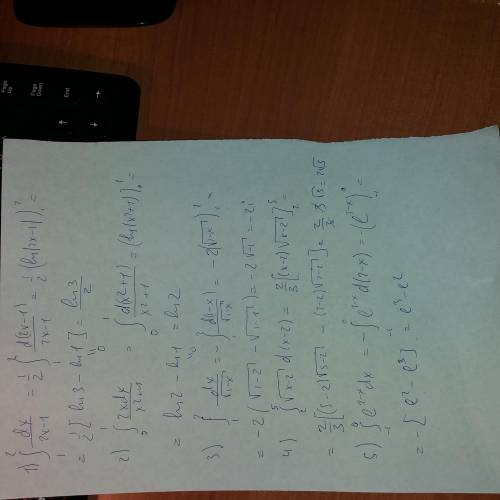 1) ∫₁² dx/(2x-1) = 1/2 ∫₁² d(2x-1)/(2x-1) = 1/2 (ln|2x-1|)|₁² =
= 1/2 [ln3 - ln1] = ln3/2
0
2) ∫₀¹ 2xdx/(x²+1) = ∫₀¹ d(x²+1)/(x²+1) = (ln(x²+1))|₀¹ =
= ln2 - ln1 = ln2
0
3) ∫₁² dx/√(1-x) = -∫₁² d(1-x)/√(1-x) = -2(√(1-x))|₁² =
= -2(√(1-2) - √(1-1)) = -2√-1 = -2i
4) ∫₂⁵ √(x-2) d(x-2) = 2/3 [(x-2)√(x-2)]₂⁵ =
= 2/3 [(5-2)√(5-2) - (2-2)√(2-2)] = 2/3 · 3√3 = 2√3
5) ∫₋₁⁰ e^(2-x) dx = -∫₋₁⁰ e^(2-x) d(2-x) = -(e^(2-x))|₋₁⁰ =
= -[e² - e³] = e³ - e²
Page Up
Page Down
End
↑
→
↓